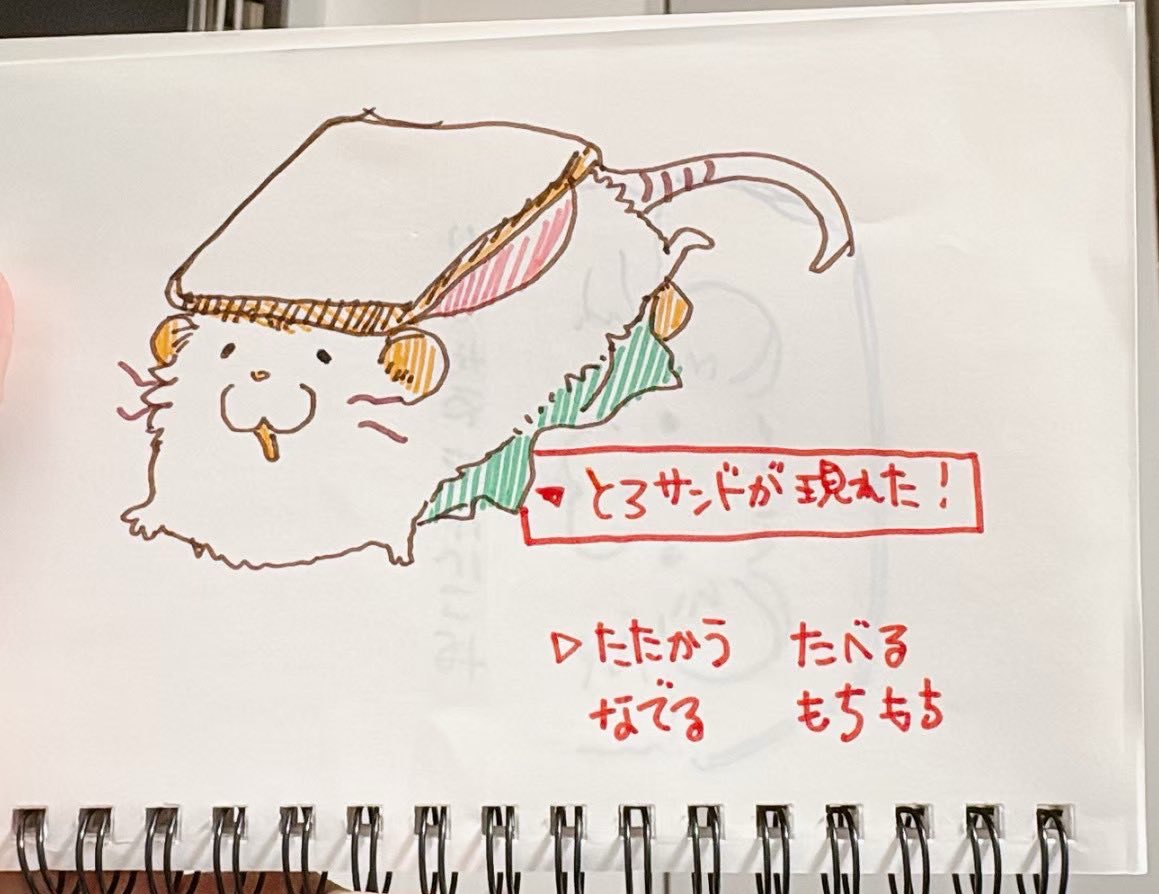 とろサンドが現れた!
▷たたかう たべる
なでる もちもち